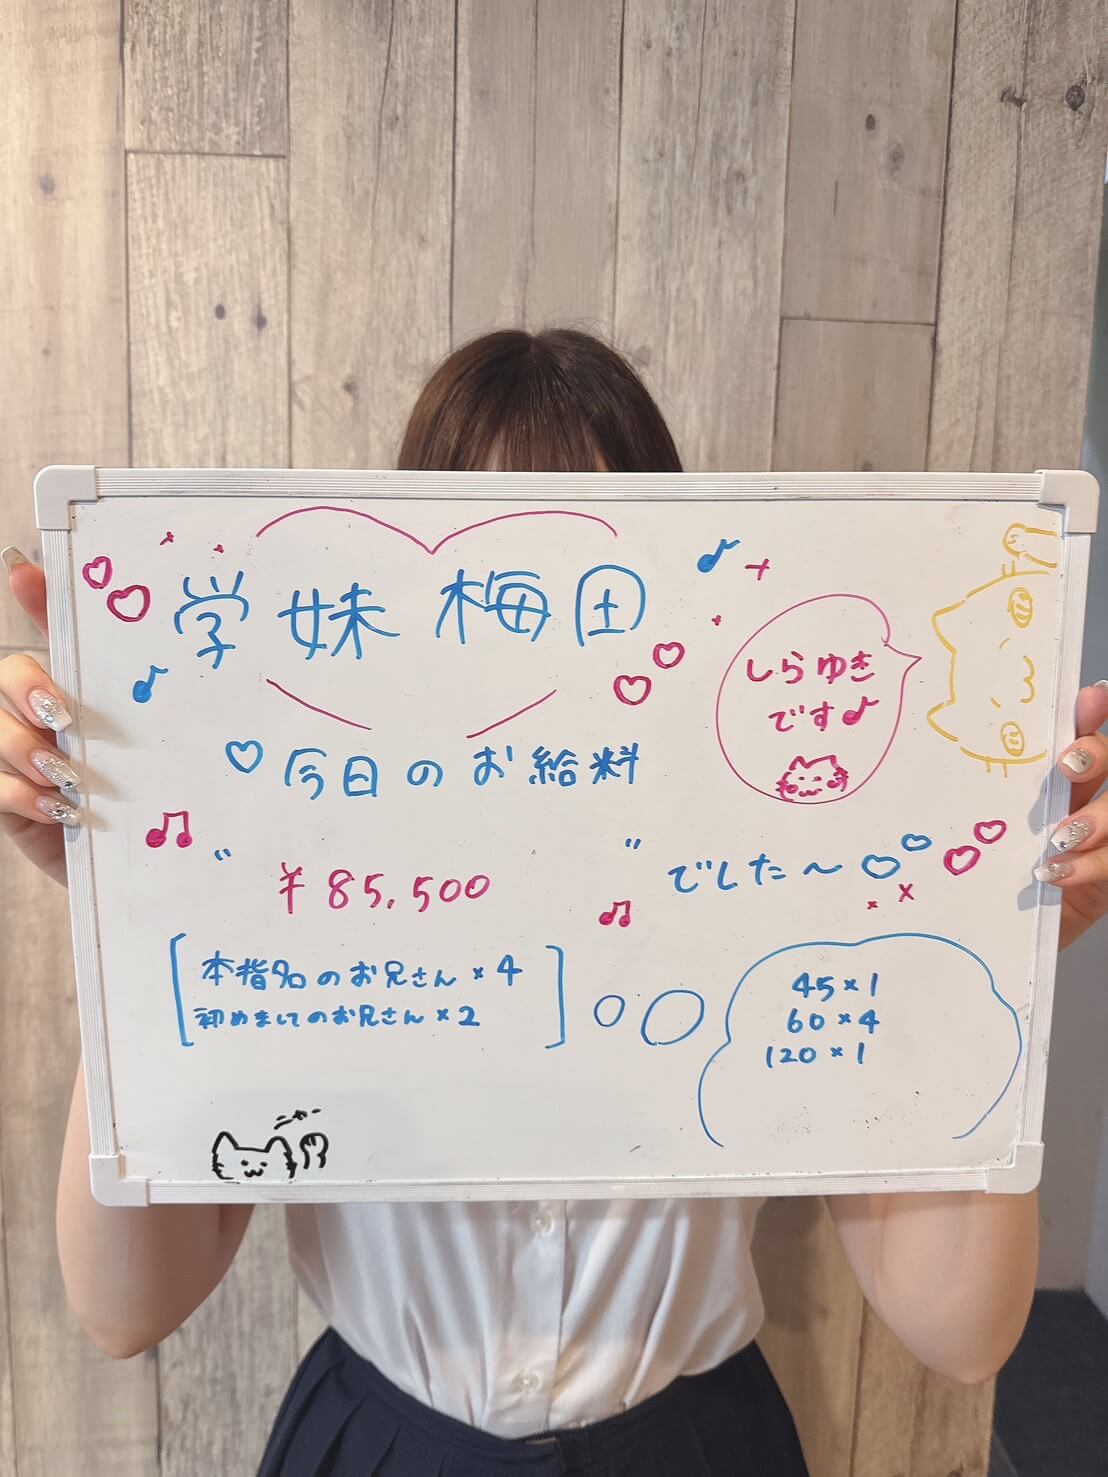 学妹 梅田
しらゆき
です♪
♡ 今日のお給料
" ¥85,500 " でした〜
本指名のお兄さん×4
初めましてのお兄さん×2
45×1
60×4
120×1
にゃー